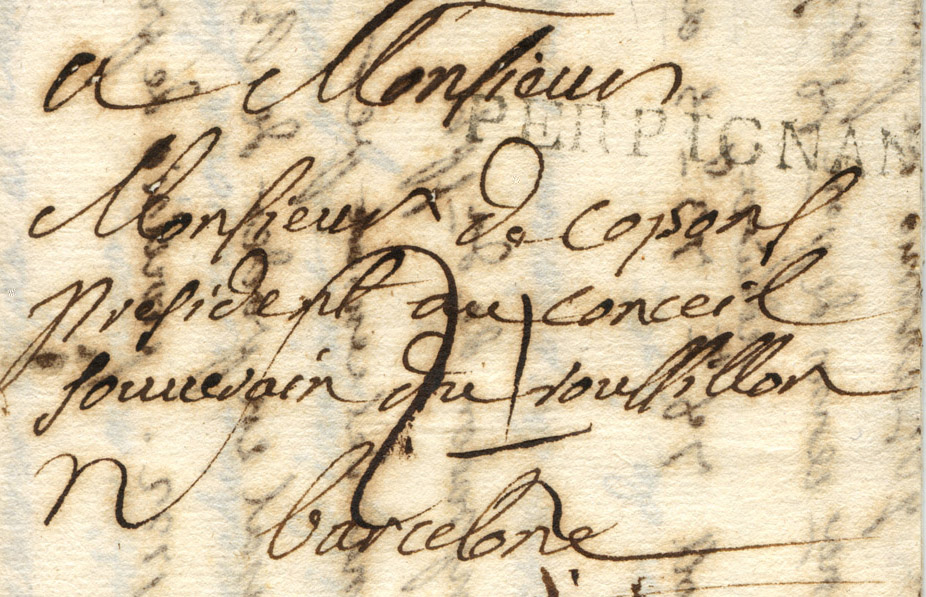 a Monsieur
PERPIGNAN
Monsieur de copons
president au conceil
souuerain du roussillon
barcelone